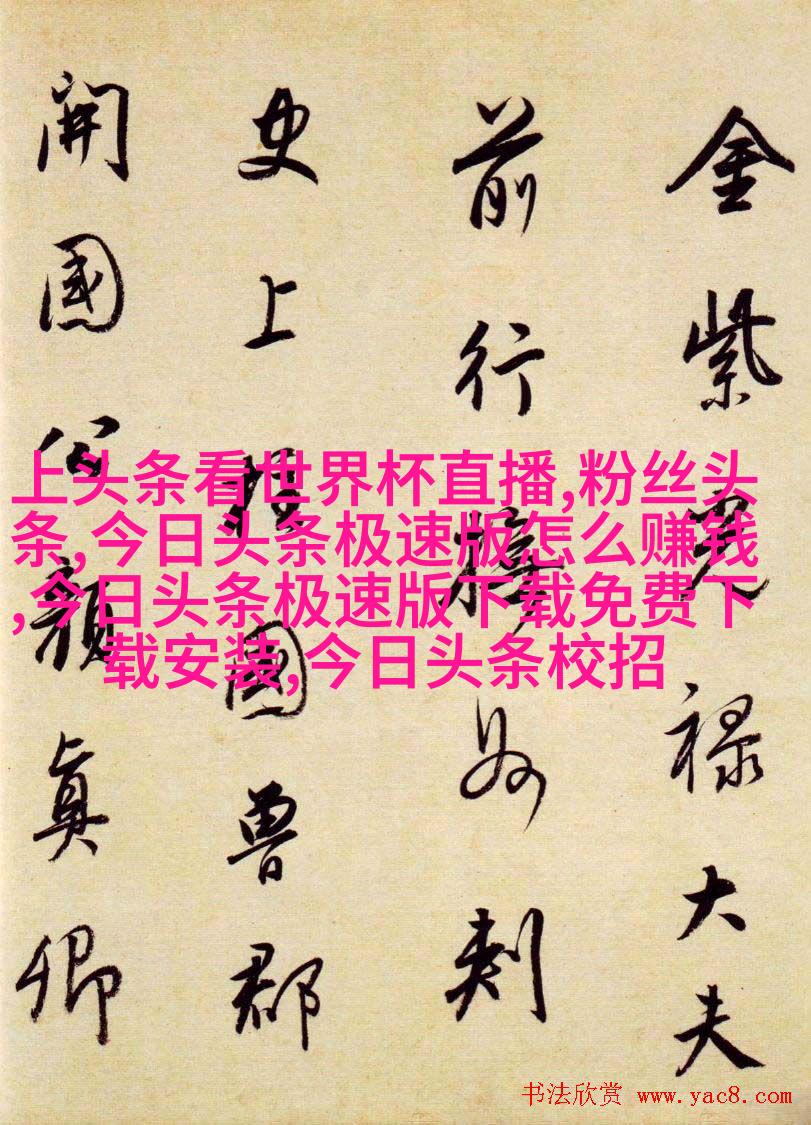 金紫光禄大夫
前行州刺
史上柱國魯郡
開國公顏真卿
上头条看世界杯直播,粉丝头
条,今日头条极速版怎么赚钱
,今日头条极速版下载免费下
载安装,今日头条校招
书法欣赏 www.yac8.com